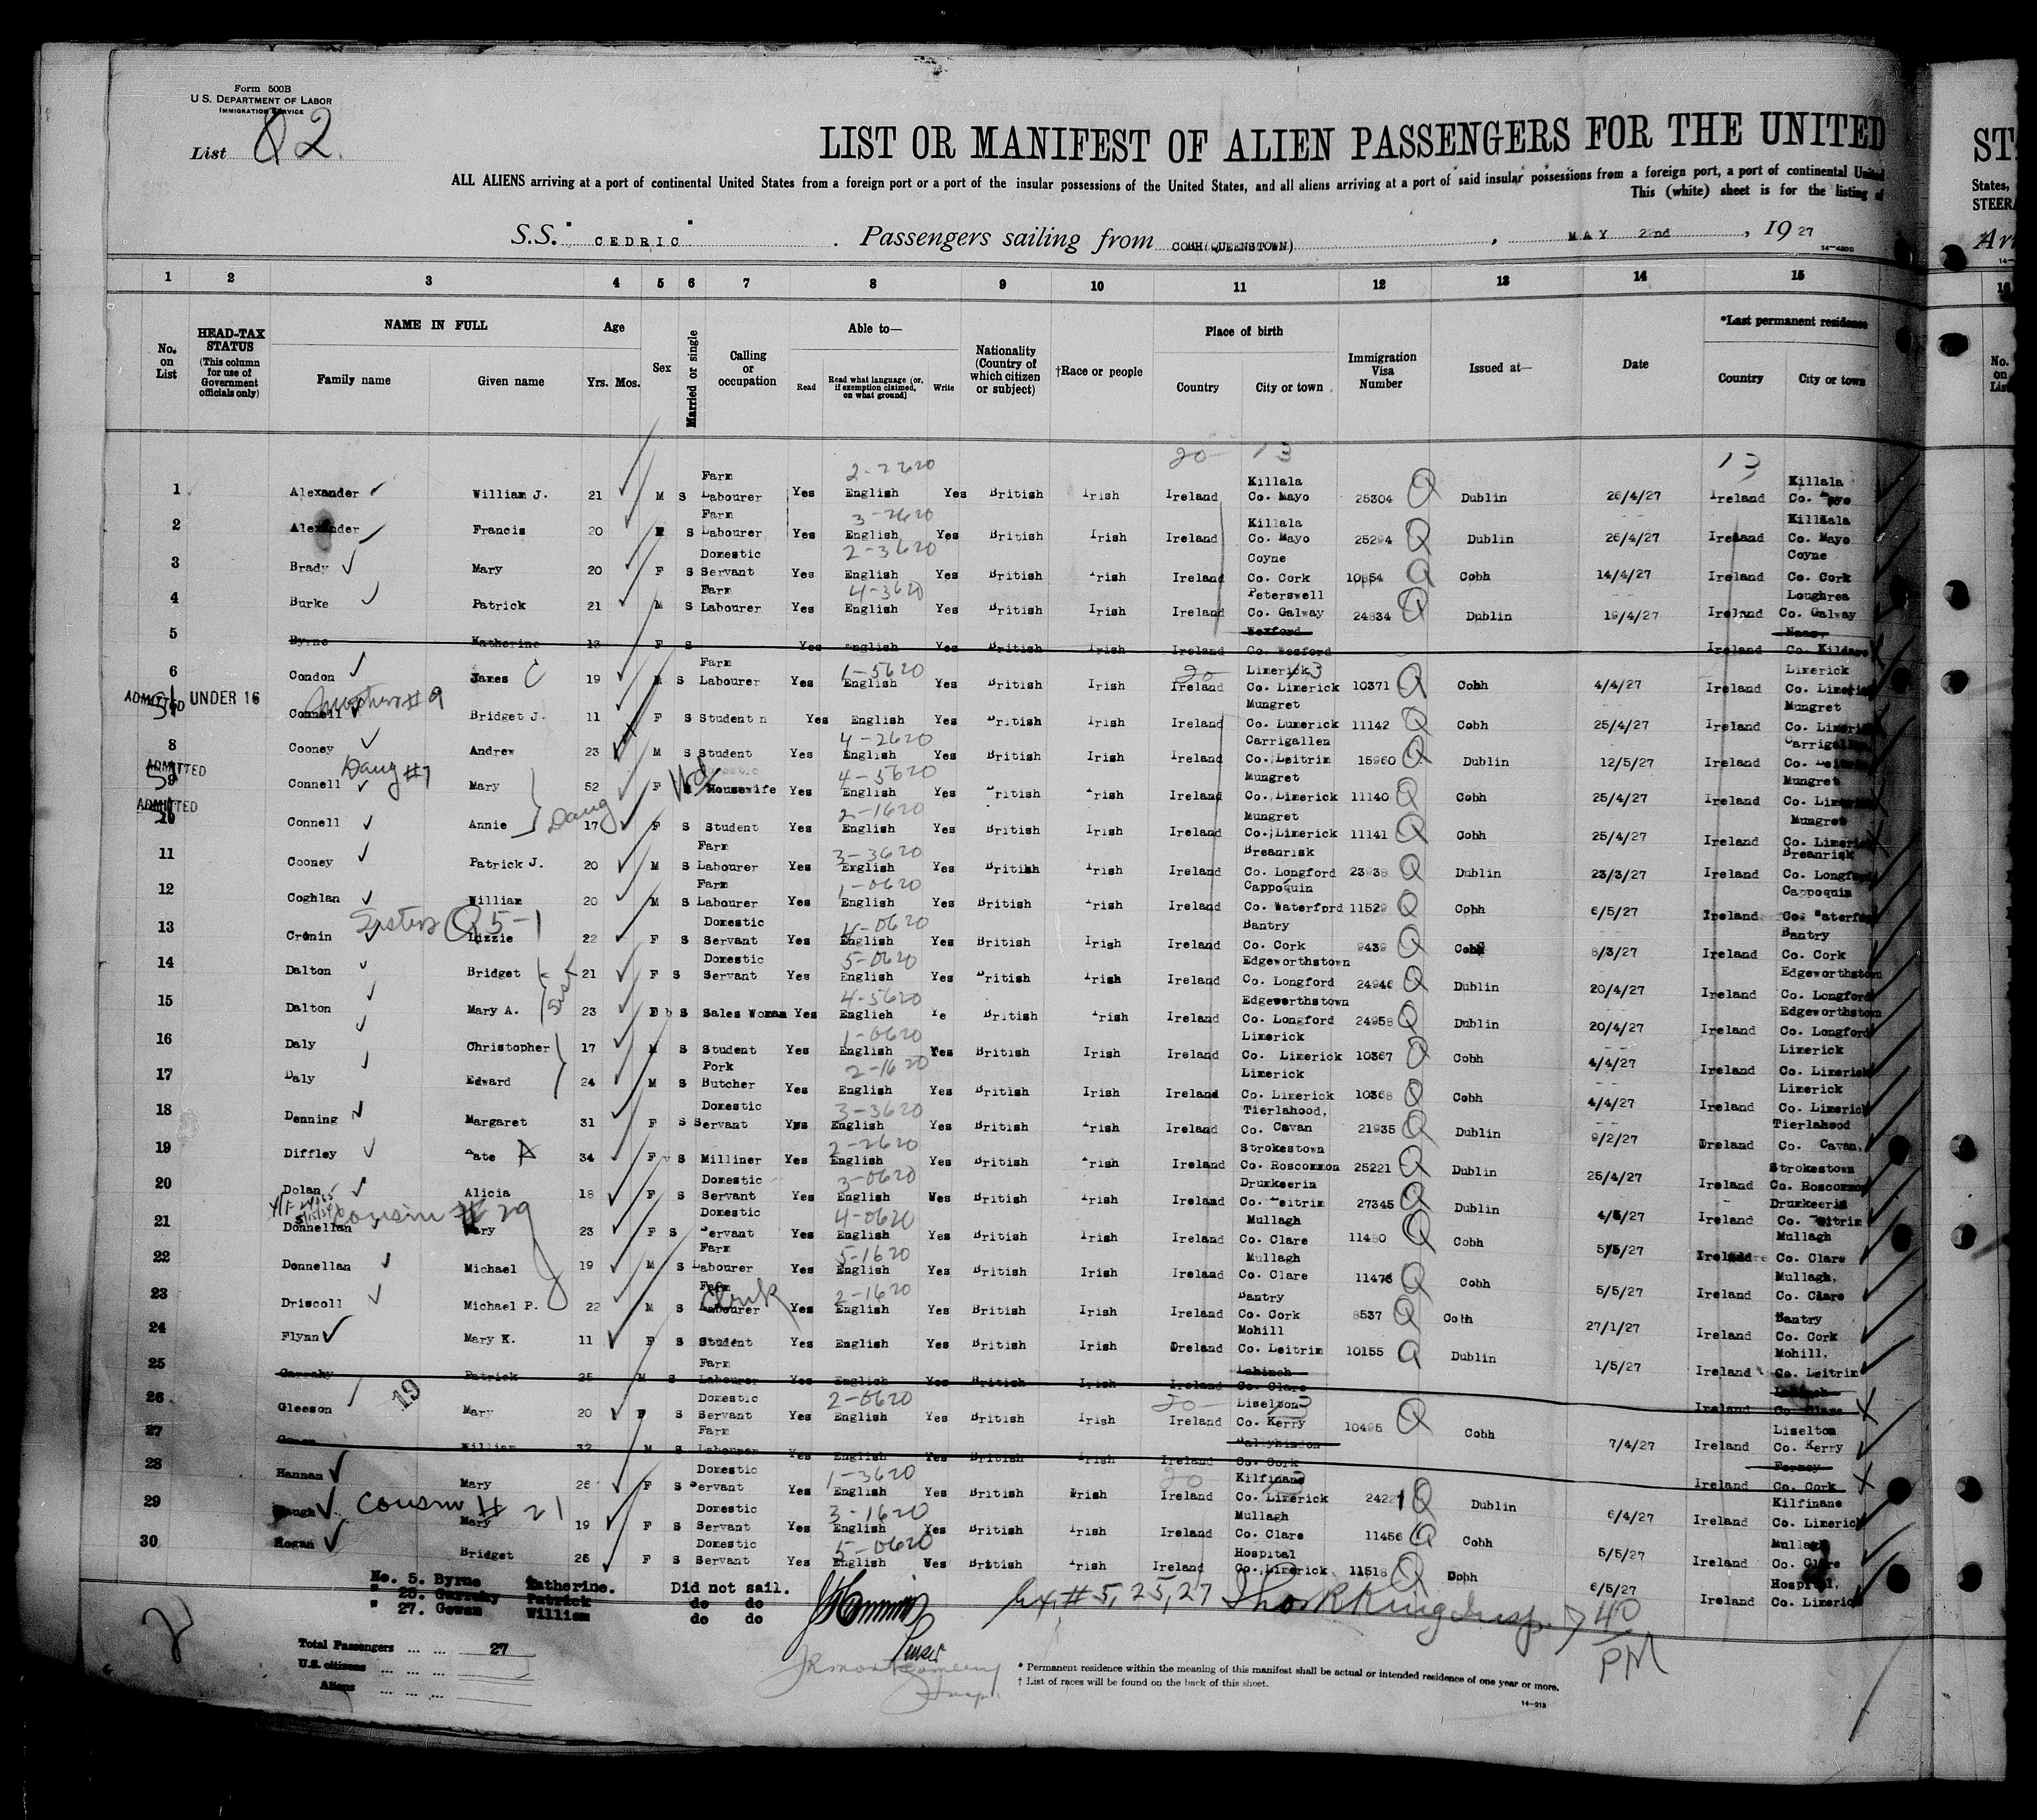 Form 500B
U.S. DEPARTMENT OF LABOR
IMMIGRATION SERVICE
List Q2.
LIST OR MANIFEST OF ALIEN PASSENGERS FOR THE UNITED
ALL ALIENS arriving at a port of continental United States from a foreign port or a port of the insular possessions of the United States, and all aliens arriving at a port of said insular possessions from a foreign port, a port of continental United
This (white) sheet is for the listing of
S.S. " CEDRIC " . Passengers sailing from COBH(QUEENSTOWN) , MAY 22nd , 1927
14-4205
1 2 3 4 5 6 7 8 9 10 11 12 13 14 15
No. on List
HEAD-TAX STATUS (This column for use of Government officials only)
NAME IN FULL Family name Given name
Age Yrs. Mos.
Sex
Married or single
Calling or occupation
Able to— Read Read what language [or, if exemption claimed, on what ground] Write
Nationality (Country of which citizen or subject)
†Race or people
Place of birth Country City or town
Immigration Visa Number
Issued at—
Date
*Last permanent residence Country City or town
20 13 13
1 Alexander William J. 21 M S Farm Labourer Yes 2-2620 English Yes British Irish Ireland Killala Co. Mayo 25304 Q Dublin 26/4/27 Ireland Killala Co. Mayo
2 Alexander Francis 20 M S Farm Labourer Yes 3-2620 English Yes British Irish Ireland Killala Co. Mayo 25294 Q Dublin 26/4/27 Ireland Killala Co. Mayo
3 Brady Mary 20 F S Domestic Servant Yes 2-3620 English Yes British Irish Ireland Coyne Co. Cork 10854 Q Cobh 14/4/27 Ireland Coyne Co. Cork
4 Burke Patrick 21 M S Farm Labourer Yes 4-3620 English Yes British Irish Ireland Peterswell Co. Galway 24834 Q Dublin 19/4/27 Ireland Loughrea Co. Galway
5 Byrne Katherine 13 F S Yes English Yes British Ireland Wexford Co. Wexford Ireland Naas, Co. Kildare
6 Condon James C 19 M S Farm Labourer Yes 1-5620 English Yes British Irish 20 Ireland Limerick 13 Co. Limerick 10371 Q Cobh 4/4/27 Ireland Limerick Co. Limerick
ADMITTED UNDER 16 Mother #9 Connell Bridget J. 11 F S Student n Yes English Yes British Irish Ireland Mungret Co. Lumerick 11142 Q Cobh 25/4/27 Ireland Mungret Co. Limerick
8 Cooney Andrew 23 M S Student Yes 4-2620 English Yes British Irish Ireland Carrigallen Co. Leitrim 15960 Q Dublin 12/5/27 Ireland Carrigallen Co. Leitrim
ADMITTED 9 Daug #7 Connell Mary 52 F Wd Housewife Yes 4-5620 English Yes British Irish Ireland Mungret Co. Limerick 11140 Q Cobh 25/4/27 Ireland Mungret Co. Limerick
ADMITTED 10 Connell Annie Daug 17 F S Student Yes 2-1620 English Yes British Irish Ireland Mungret Co. Limerick 11141 Q Cobh 25/4/27 Ireland Mungret Co. Limerick
11 Cooney Patrick J. 20 M S Farm Labourer Yes 3-3620 English Yes British Irish Ireland Breanrisk Co. Longford 23938 Q Dublin 23/3/27 Ireland Breanrisk Co. Longford
12 Coghlan William 20 M S Farm Labourer Yes 1-0620 English Yes British Irish Ireland Cappoquin Co. Waterford 11529 Q Cobh 6/5/27 Ireland Cappoquin Co. Waterford
13 Sister Q5-1 Cronin Lizzie 22 F S Domestic Servant Yes 4-0620 English Yes British Irish Ireland Bantry Co. Cork 9439 Q Cobh 8/3/27 Ireland Bantry Co. Cork
14 Dalton Bridget 21 F S Domestic Servant Yes 5-0620 English Yes British Irish Ireland Edgeworthstown Co. Longford 24946 Q Dublin 20/4/27 Ireland Edgeworthstown Co. Longford
15 Dalton Mary A. Sist 23 F S Sales Woman Yes 4-5620 English Ye British Irish Ireland Edgeworthstown Co. Longford 24958 Q Dublin 20/4/27 Ireland Edgeworthstown Co. Longford
16 Daly Christopher 17 M S Student Yes 1-0620 English Yes British Irish Ireland Limerick Co. Limerick 10367 Q Cobh 4/4/27 Ireland Limerick Co. Limerick
17 Daly Edward 24 M S Pork Butcher Yes 2-1620 English Yes British Irish Ireland Limerick Co. Limerick 10368 Q Cobh 4/4/27 Ireland Limerick Co. Limerick
18 Denning Margaret 31 F S Domestic Servant Yes 3-3620 English Yes British Irish Ireland Tierlahood, Co. Cavan 21935 Q Dublin 9/2/27 Ireland Tierlahood Co. Cavan,
19 Diffley Kate A 34 F S Milliner Yes 2-2620 English Yes British Irish Ireland Strokestown Co. Roscommon 25221 Q Dublin 25/4/27 Ireland Strokestown Co. Roscommon
20 Dolan Alicia 18 F S Domestic Servant Yes 3-0620 English Yes British Irish Ireland Drumkeerin Co. Leitrim 27345 Q Dublin 4/5/27 Ireland Drumkeerin Co. Leitrim
21 Cousin # 29 Donnellan Mary 23 F S Domestic Servant Yes 4-0620 English Yes British Irish Ireland Mullagh Co. Clare 11480 Q Cobh 5/5/27 Ireland Mullagh Co. Clare
22 Donnellan Michael 19 M S Farm Labourer Yes 5-1620 English Yes British Irish Ireland Mullagh Co. Clare 11476 Q Cobh 5/5/27 Ireland Mullagh, Co. Clare
23 Driscoll Michael P. 22 M S Farm Labourer Clerk Yes 2-1620 English Yes British Irish Ireland Bantry Co. Cork 8537 Q Cobh 27/1/27 Ireland Bantry Co. Cork
24 Flynn Mary K. 11 F S Student Yes English Yes British Irish Ireland Mohill Co. Leitrim 10155 Q Dublin 1/5/27 Ireland Mohill, Co. Leitrim
25 Garrahy Patrick 25 M S Farm Labourer Yes English Yes British Irish Ireland Lahinch Co. Clare Ireland Lahinch Co. Clare
26 Gleeson 19 Mary 20 F S Domestic Servant Yes 2-0620 English Yes British Irish 20 Ireland Liselton 13 Co. Kerry 10495 Q Cobh 7/4/27 Ireland Liselton Co. Kerry
27 Gowan William 32 M S Farm Labourer Yes English Yes British Irish Ireland Ballyhindon Co. Cork Ireland Fermoy Co. Cork
28 Hannan Mary 26 F S Domestic Servant Yes 1-3620 English Yes British Irish 20 Ireland Kilfinane Co. Limerick 24221 Q Dublin 6/4/27 Ireland Kilfinane Co. Limerick
29 Haugh Cousin # 21 Mary 19 F S Domestic Servant Yes 3-1620 English Yes British Irish Ireland Mullagh Co. Clare 11456 Q Cobh 5/5/27 Ireland Mullagh Co. Clare
30 Hogan Bridget 26 F S Domestic Servant Yes 5-0620 English Yes British Irish Ireland Hospital Co. Limerick 11518 Q Cobh 6/5/27 Ireland Hospital, Co. Limerick
No. 5. Byrne Katherine. Did not sail.
" 25. Garrahy Patrick do do
" 27. Gowan William do do
Purser
Ex. # 5, 25, 27
7 40 PM
2
Total Passengers ... ... 27
U.S. citizens ... ... ...
Aliens ... ... ...
JR Montgomery
Insp.
* Permanent residence within the meaning of this manifest shall be actual or intended residence of one year or more.
† List of races will be found on the back of this sheet.
14-213
ST
States,
STEERA
Arr
16
No. on List